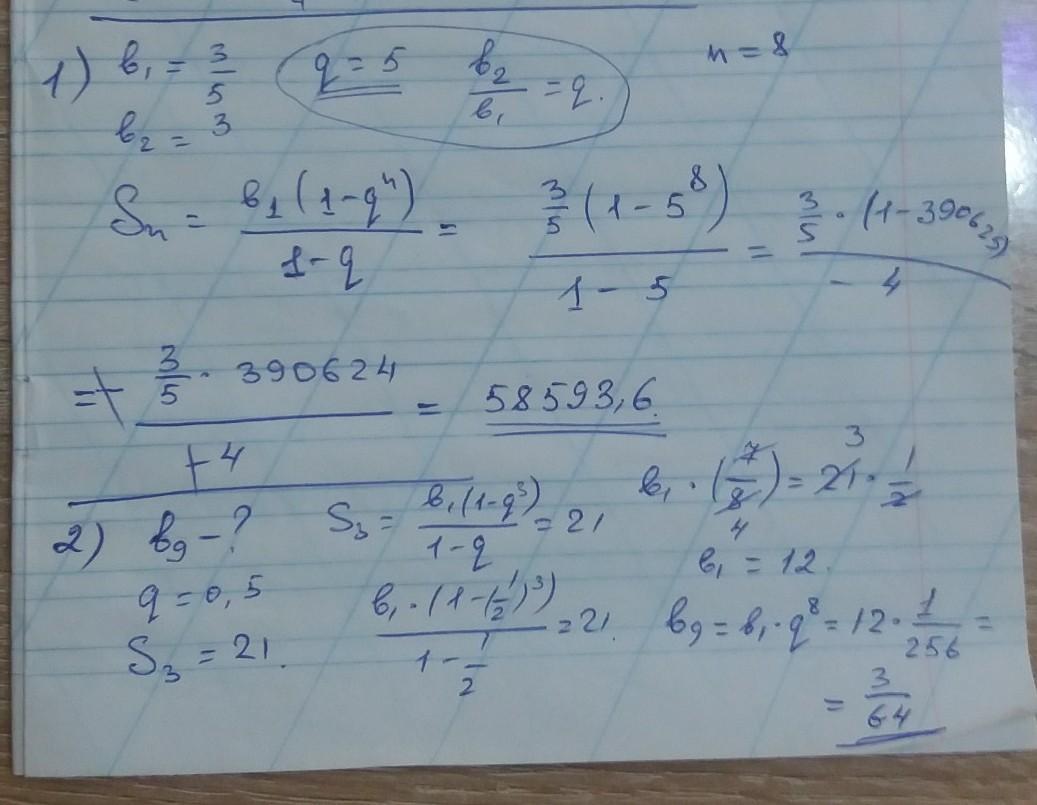 1) b₁ = 3/5 q = 5 b₂/b₁ = q. n = 8
b₂ = 3
Sₙ = b₁(1-qⁿ)/(1-q) = 3/5(1-5⁸)/(1-5) = 3/5·(1-390625)/(-4)
= + 3/5·390624/+4 = 58593,6.
2) b₉ - ? S₃ = b₁(1-q³)/(1-q) = 21 b₁·(7/8) = 21·1/2
3
4
b₁ = 12.
q = 0,5 b₁·(1-(1/2)³)/(1-1/2) = 21. b₉ = b₁·q⁸ = 12·1/256 =
S₃ = 21.
= 3/64